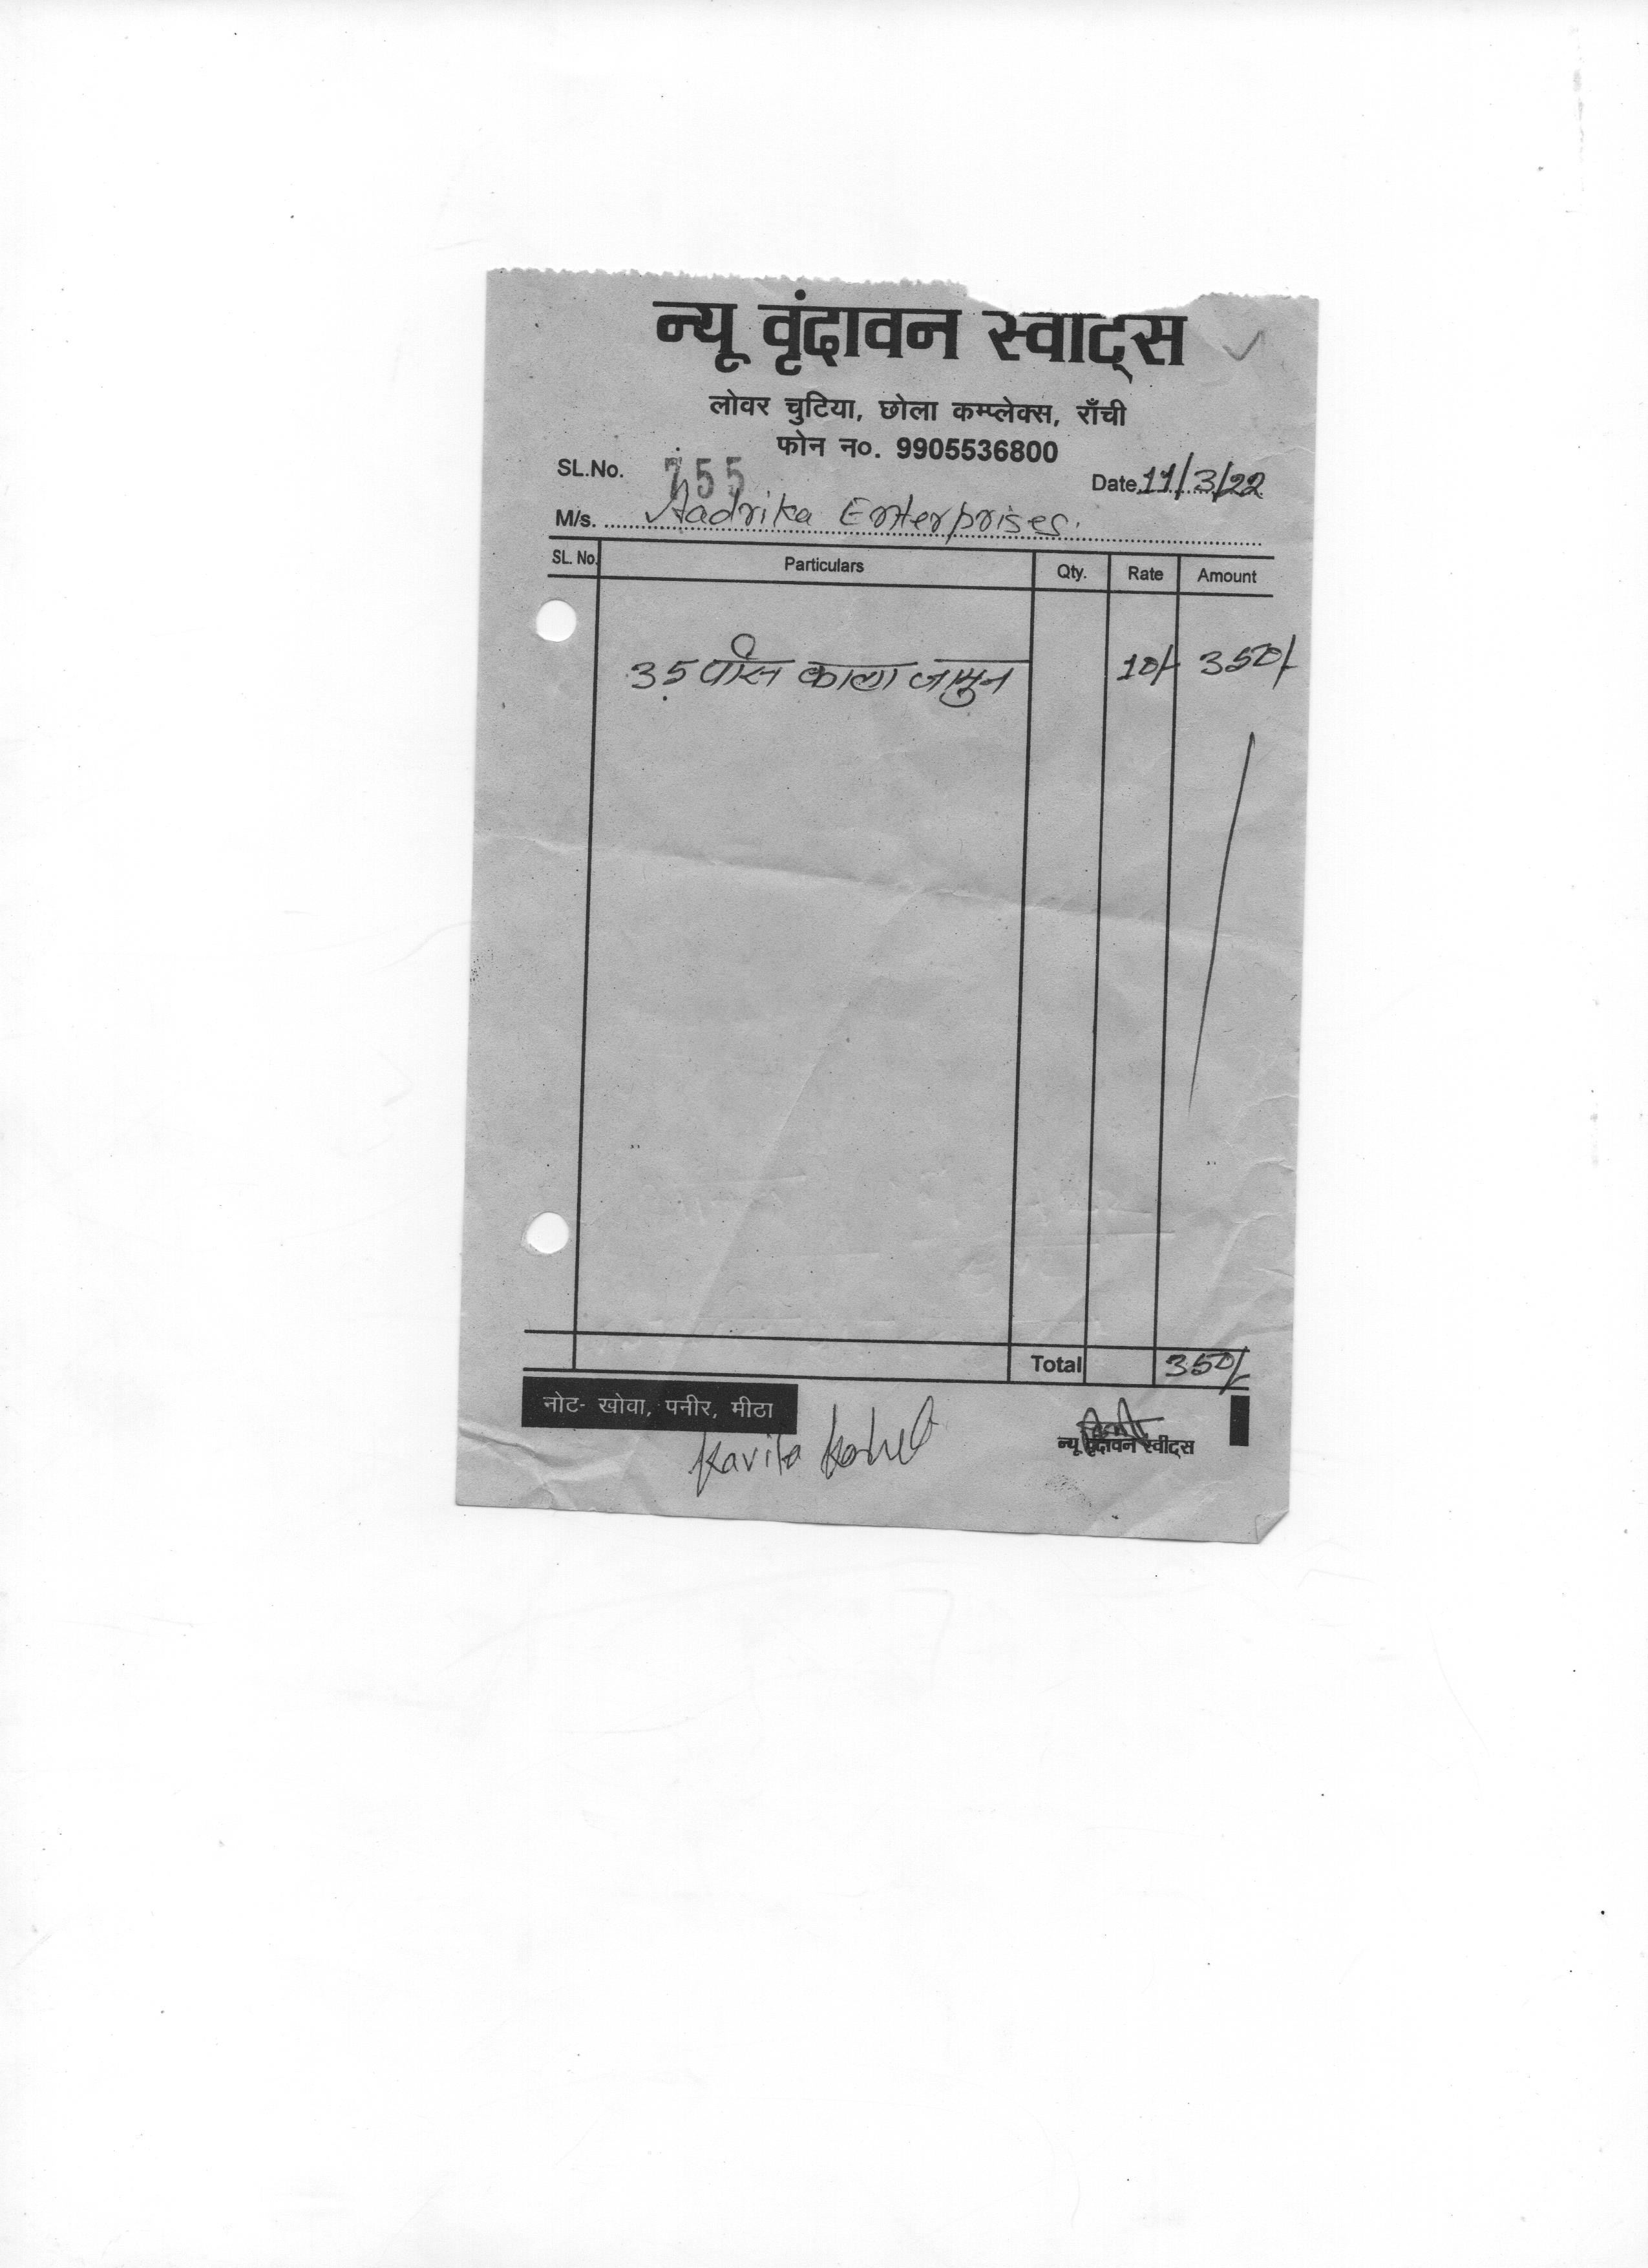 न्यू वृंदावन स्वीट्स
लोवर चुटिया, छोला कम्प्लेक्स, राँची
फोन न०. 9905536800
SL.No. 755
Date 11/3/22
M/s. Aadrika Enterprises.
SL. No. Particulars Qty. Rate Amount
35 पीस काला जामुन 10/- 350/-
Total 350/-
नोट- खोवा, पनीर, मीठा
Kavita
न्यू वृंदावन स्वीट्स